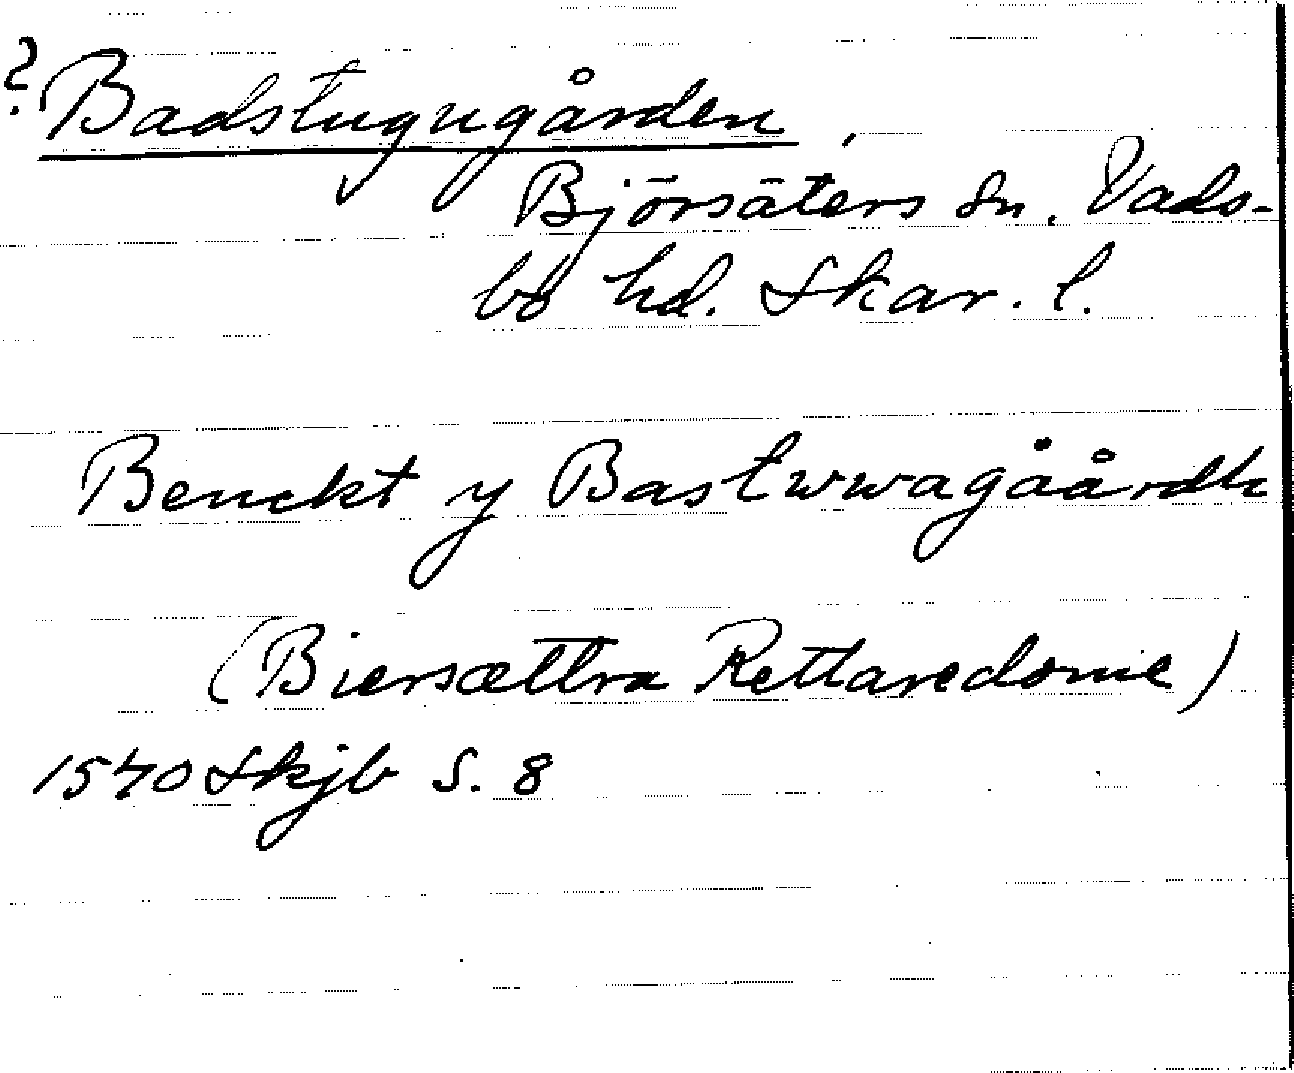 ? Badstugugården,
Björsäters sn. Vads-
bo hd. Skar. l.
Benckt y Bastwwagåårdh
(Biersættra Rettaredome)
1540 Skjb s. 8